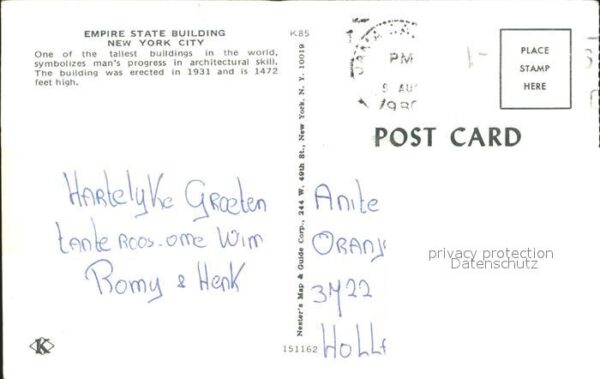 EMPIRE STATE BUILDING
NEW YORK CITY
One of the tallest buildings in the world,
symbolizes man's progress in architectural skill.
The building was erected in 1931 and is 1472
feet high.
K85
PM
AU
198
PLACE
STAMP
HERE
POST CARD
Hartelyke Groeten
tante Roos-ome Wim
Romy & Henk
Nester's Map & Guide Corp., 244 W. 49th St., New York, N. Y. 10019
Anite
ORANJ
privacy protection
Datenschutz
3722
HOLL
K
151162